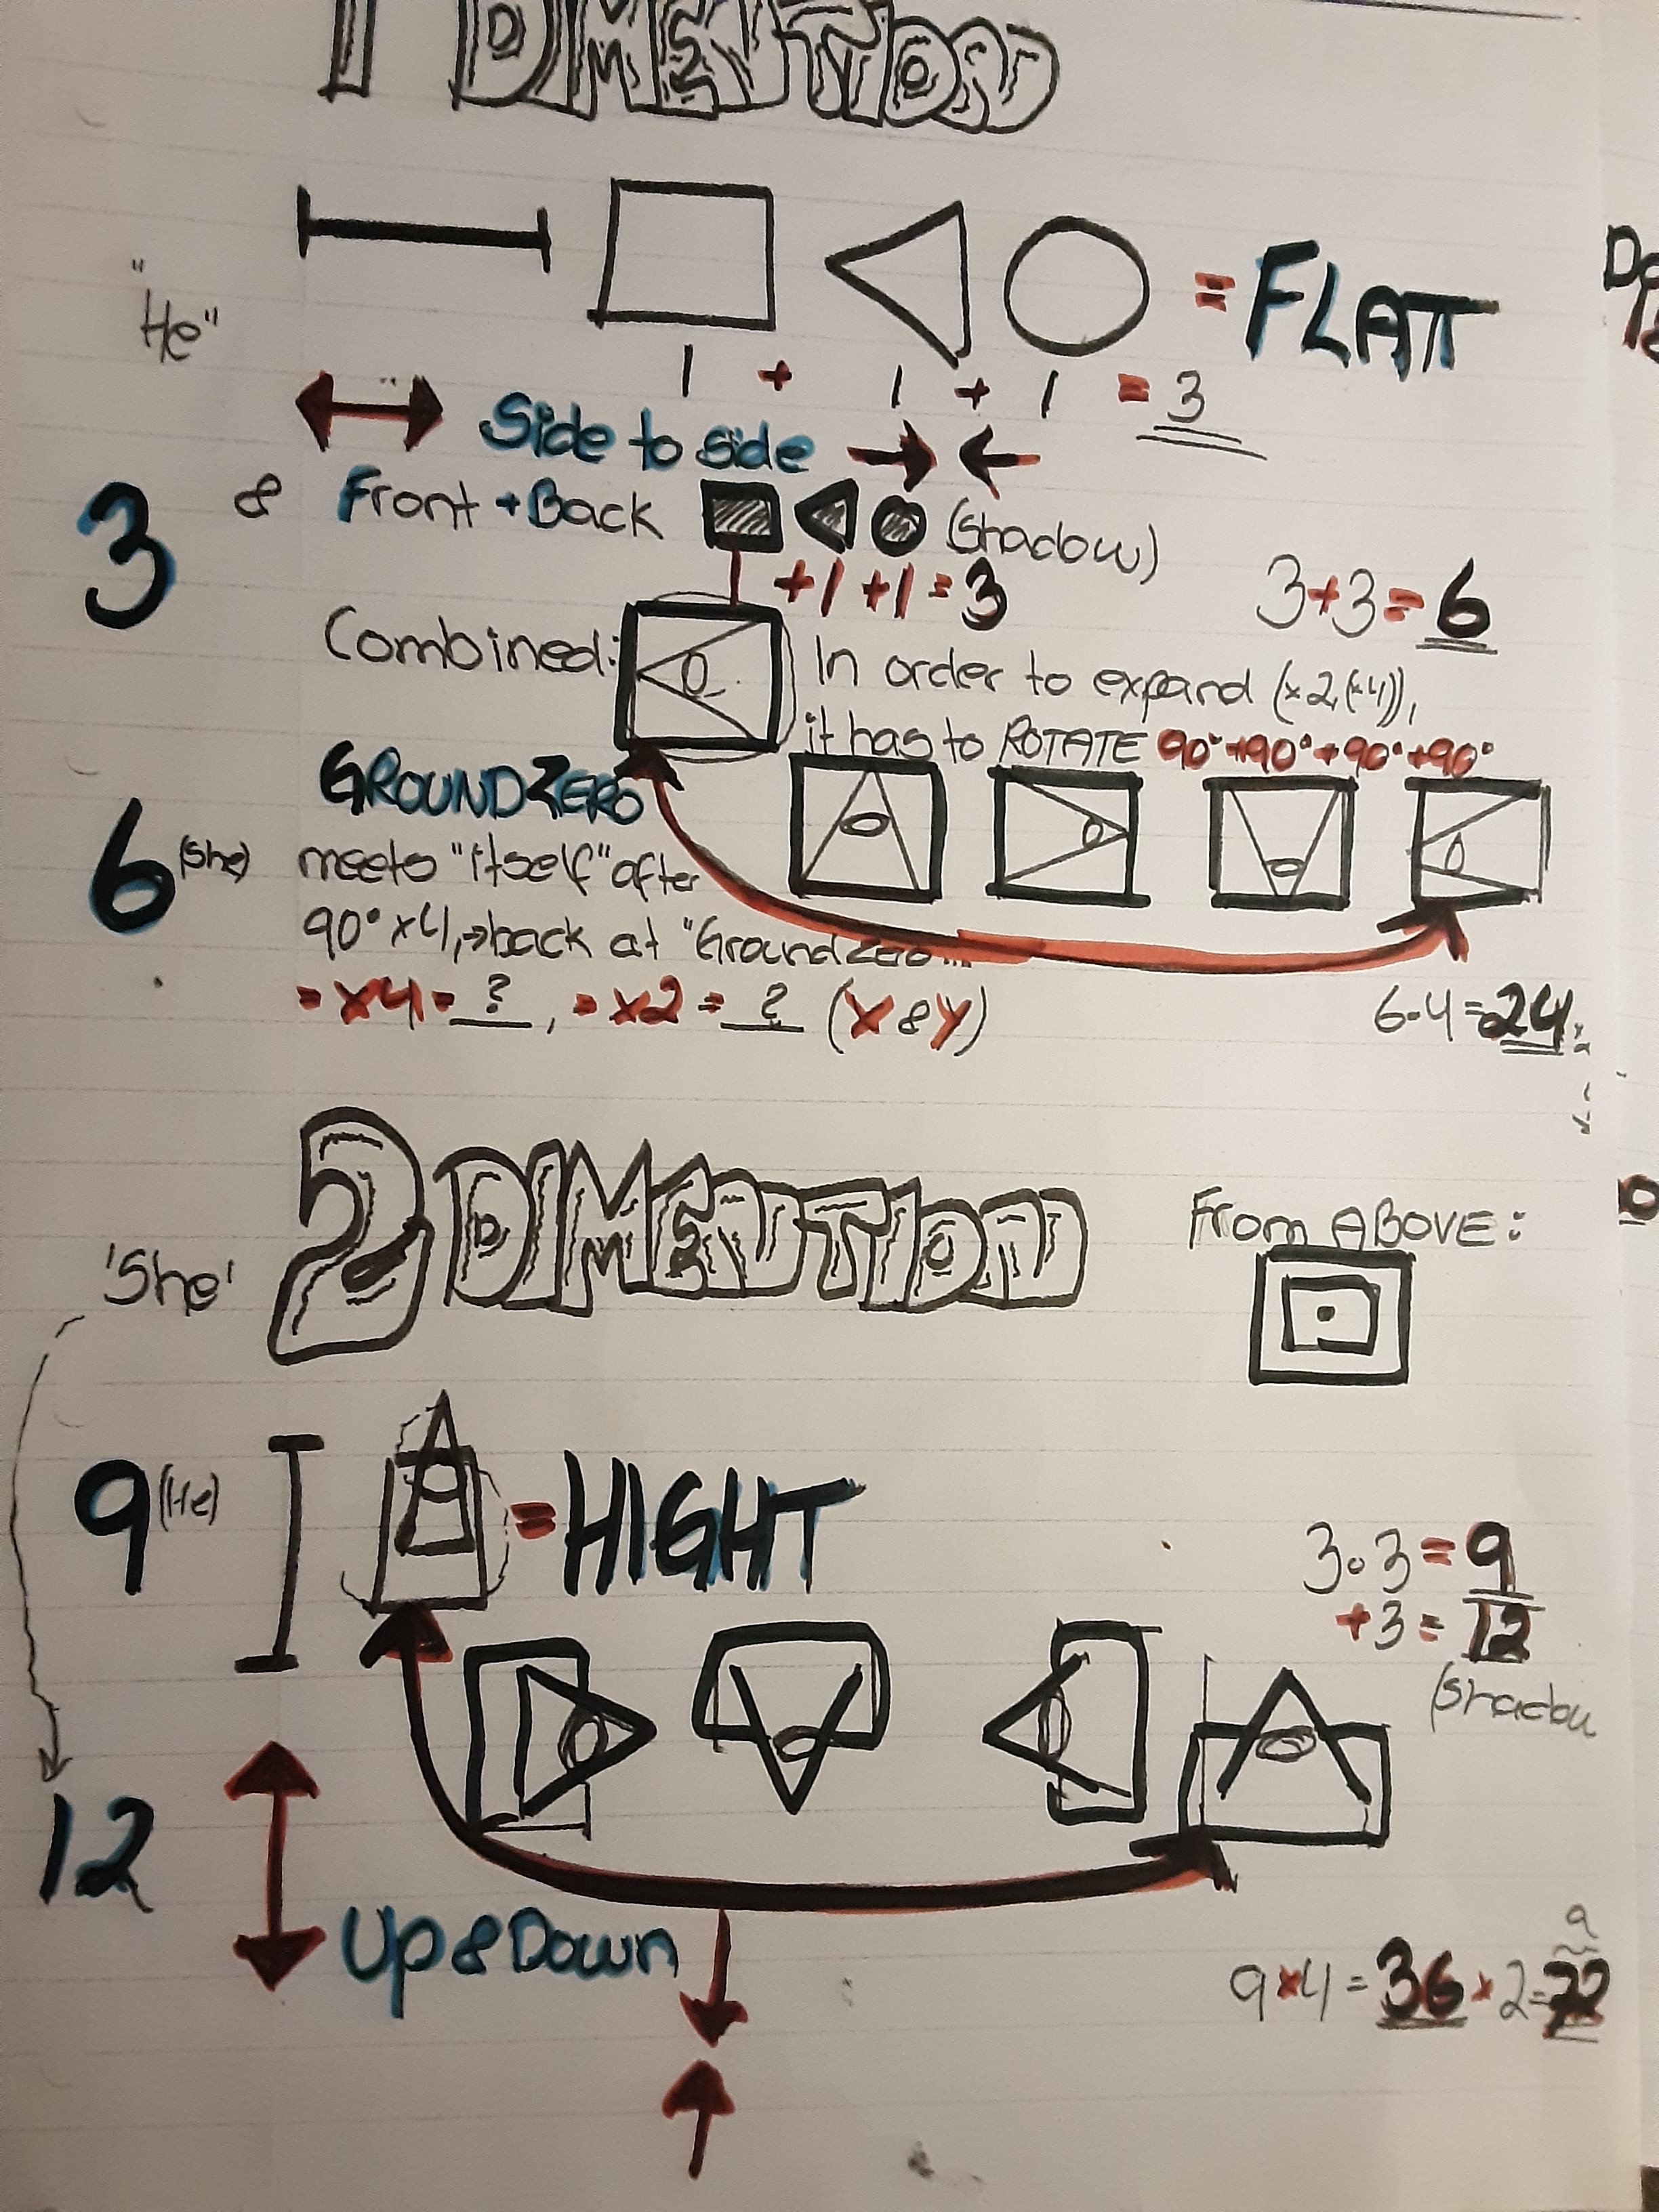 1 DIMENTION
"He"
= FLAT
1 + 1 + 1 = 3
Side to side
3 & Front + Back (Shadow)
+1 +1 = 3
3+3 = 6
Combined:
In order to expand (x2(x4)),
it has to ROTATE 90°+90°+90°+90°
GROUND ZERO
6 (She) meets "itself" after
90° x4, → back at "Ground Zero...
= x4 = ?, = x2 = ? (x & y)
6·4 = 24
'She' 2 DIMENTION
From ABOVE:
9 (He) = HIGHT
3·3 = 9
+3 = 12
12
Up & Down
9
9x4 = 36 x 2 = 72